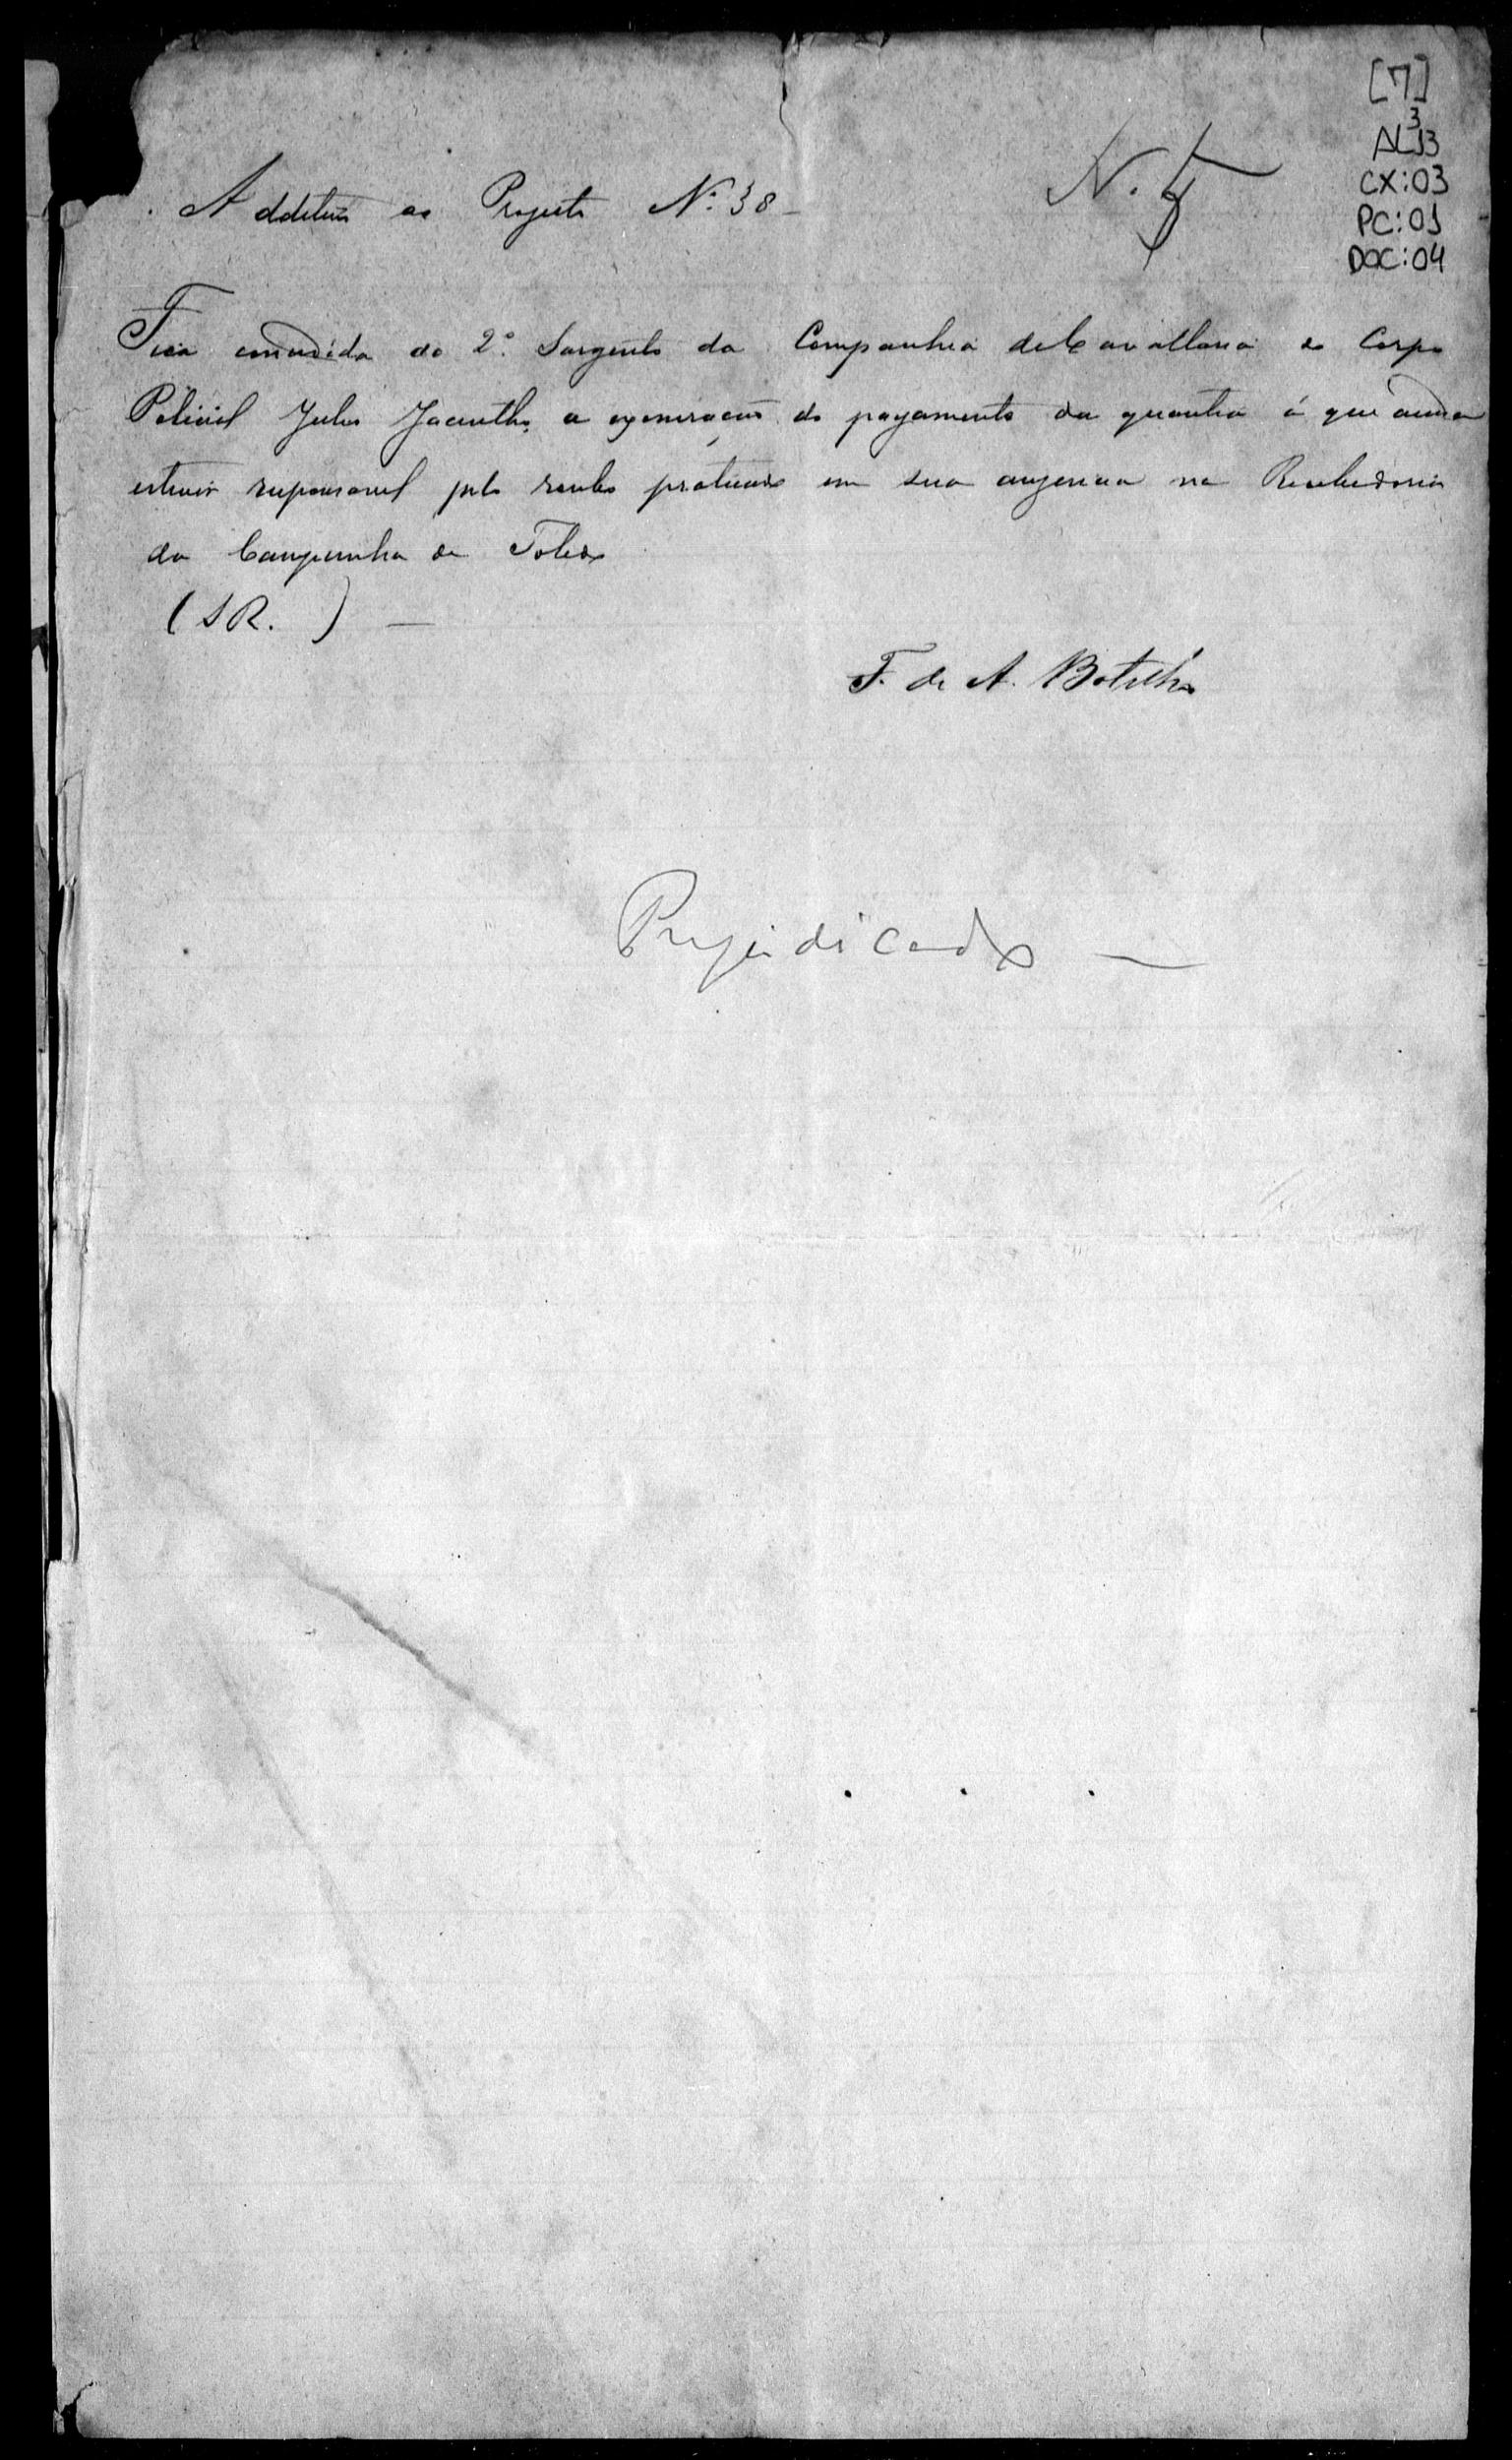 [7]
AL13
3
CX:03
PC:01
DOC:04
N. 5
Additivo ao Projecto Nº 38
Fica concedida ao 2º Sargento da Companhia de Cavallaria do Corpo
Policial Julio Jacintho, a exoneração do pagamento da quantia á que ainda
estiver responsavel pelo roubo praticado em sua ausencia na Recebedoria
da Campanha de Toledo
(S R. ) —
F. de A. Botelho
Prejudicado —